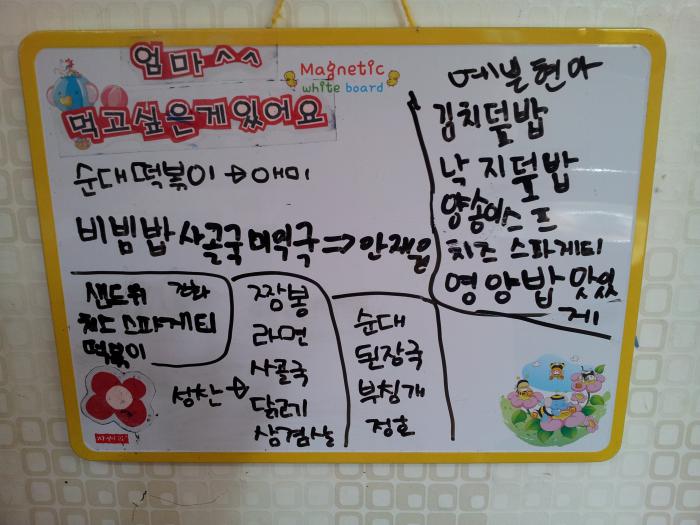 엄마^^
먹고싶은게있어요
Magnetic
white board
순대떡볶이 → 애미
비빔밥 사골국 미역국 ⇒ 안재은
예본현아
김치덮밥
낙지덮밥
양송이스프
치즈 스파게티
영양밥 맛있
게
샌드위
치즈 스파게티
떡볶이
성찬 →
짬봉
라면
사골국
닭고기
삼겹살
순대
된장국
부침개
정호